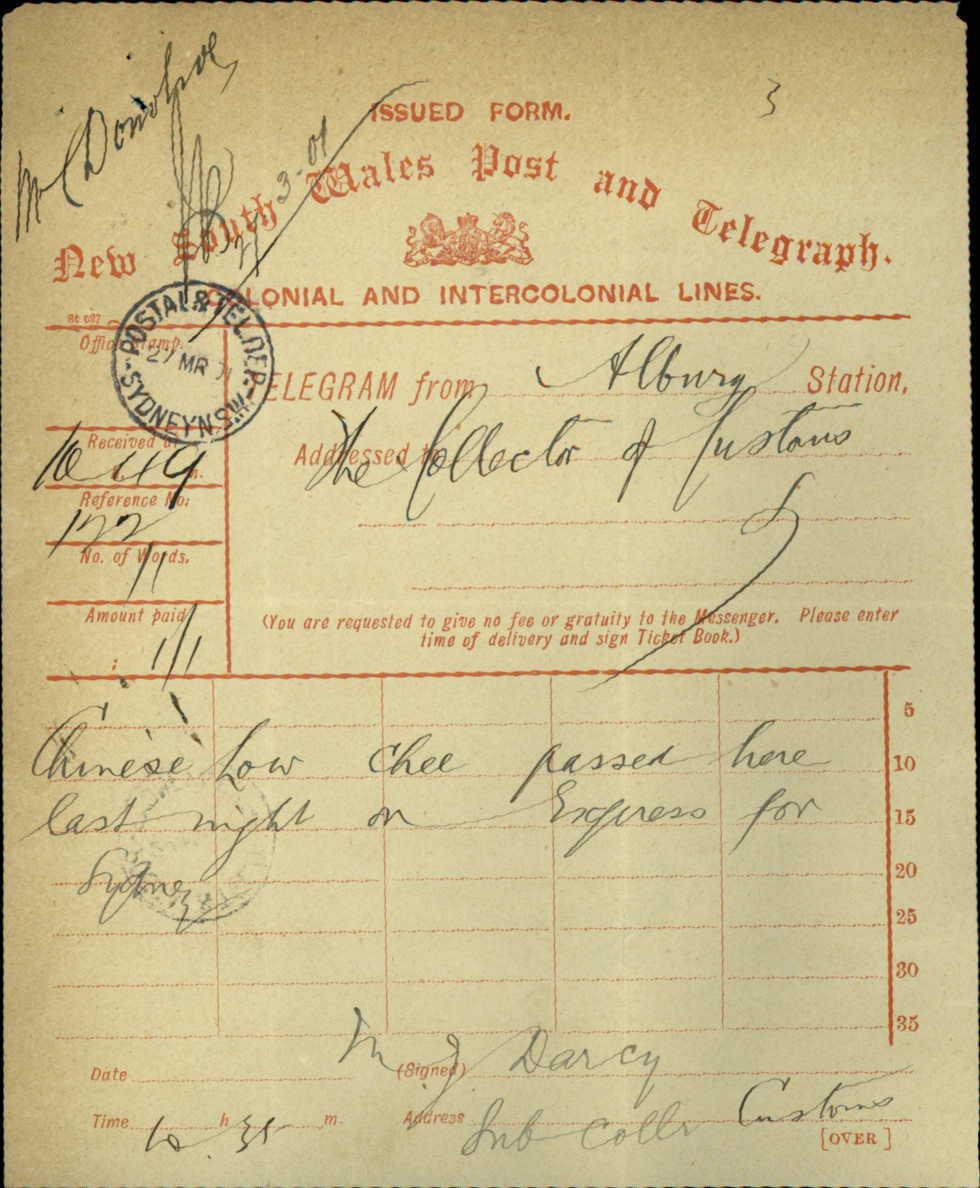 Mr Donohoe
3
ISSUED FORM.
27-3-01
New South Wales Post and Telegraph.
COLONIAL AND INTERCOLONIAL LINES.
POSTAL & TEL DEP.
27 MR
SYDNEY N.S.W.
TELEGRAM from Albury Station,
Addressed to The Collector of Customs
S
Received at
10 49 m.
Reference No:
122
No. of Words,
11
Amount paid
: 1/1
(You are requested to give no fee or gratuity to the Messenger. Please enter
time of delivery and sign Ticket Book.)
5
Chinese Low Chee passed here 10
last night on Express for 15
Sydney 20
25
30
35
Date (Signed) M J Darcy
Time 10 h 35 m. Address Sub Collr Customs
[OVER]